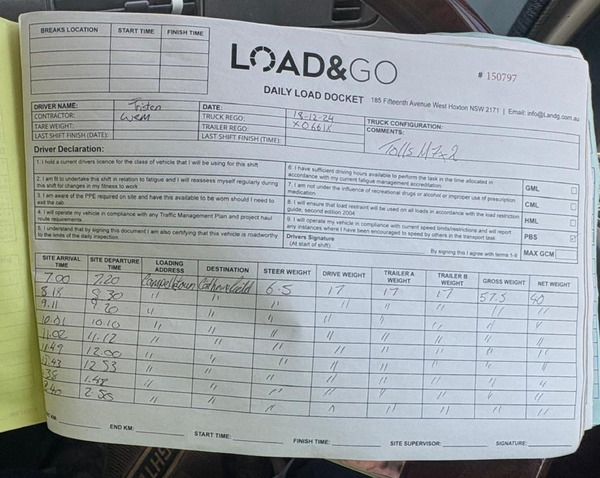 BREAKS LOCATION START TIME FINISH TIME
LOAD&GO
# 150797
DAILY LOAD DOCKET 185 Fifteenth Avenue West Hoxton NSW 2171 | Email: info@Landg.com.au
DRIVER NAME: Tristen DATE: 18-12-24
CONTRACTOR: WSM TRUCK REGO: X066IX TRUCK CONFIGURATION:
TARE WEIGHT: TRAILER REGO: COMMENTS:
LAST SHIFT FINISH (DATE): LAST SHIFT FINISH (TIME): Tolls M7x2
Driver Declaration:
1. I hold a current drivers licence for the class of vehicle that I will be using for this shift
2. I am fit to undertake this shift in relation to fatigue and I will reassess myself regularly during this shift for changes in my fitness to work
3. I am aware of the PPE required on site and have this available to be worn should I need to exit the cab
4. I will operate my vehicle in compliance with any Traffic Management Plan and project haul route requirements.
5. I understand that by signing this document I am also certifying that this vehicle is roadworthy to the limits of the daily inspection.
6. I have sufficient driving hours available to perform the task in the time allocated in accordance with my current fatigue management accreditation
7. I am not under the influence of recreational drugs or alcohol or improper use of prescription medication
8. I will ensure that load restraint will be used on all loads in accordance with the load restriction guide, second edition 2004
9. I will operate my vehicle in compliance with current speed limits/restrictions and will report any instances where I have been encouraged to speed by others in the transport task
Drivers Signature
(At start of shift) By signing this I agree with terms 1-9
GML
CML
HML
PBS
MAX GCM
SITE ARRIVAL TIME SITE DEPARTURE TIME LOADING ADDRESS DESTINATION STEER WEIGHT DRIVE WEIGHT TRAILER A WEIGHT TRAILER B WEIGHT GROSS WEIGHT NET WEIGHT
7.00 7.20 Campelltown 6.5 17 17 17 57.5 40
8.18 8.30 " " " " " " " "
9.11 9.20 " " " " " " " "
10.01 10.10 " " " " " " " "
11.02 11.12 " " " " " " " "
11.49 12.00 " " " " " " " "
12.43 12.53 " " " " " " " "
1.48 " " " " " " " "
2.40 " " " " " " " "
END KM: START TIME: FINISH TIME: SITE SUPERVISOR: SIGNATURE: